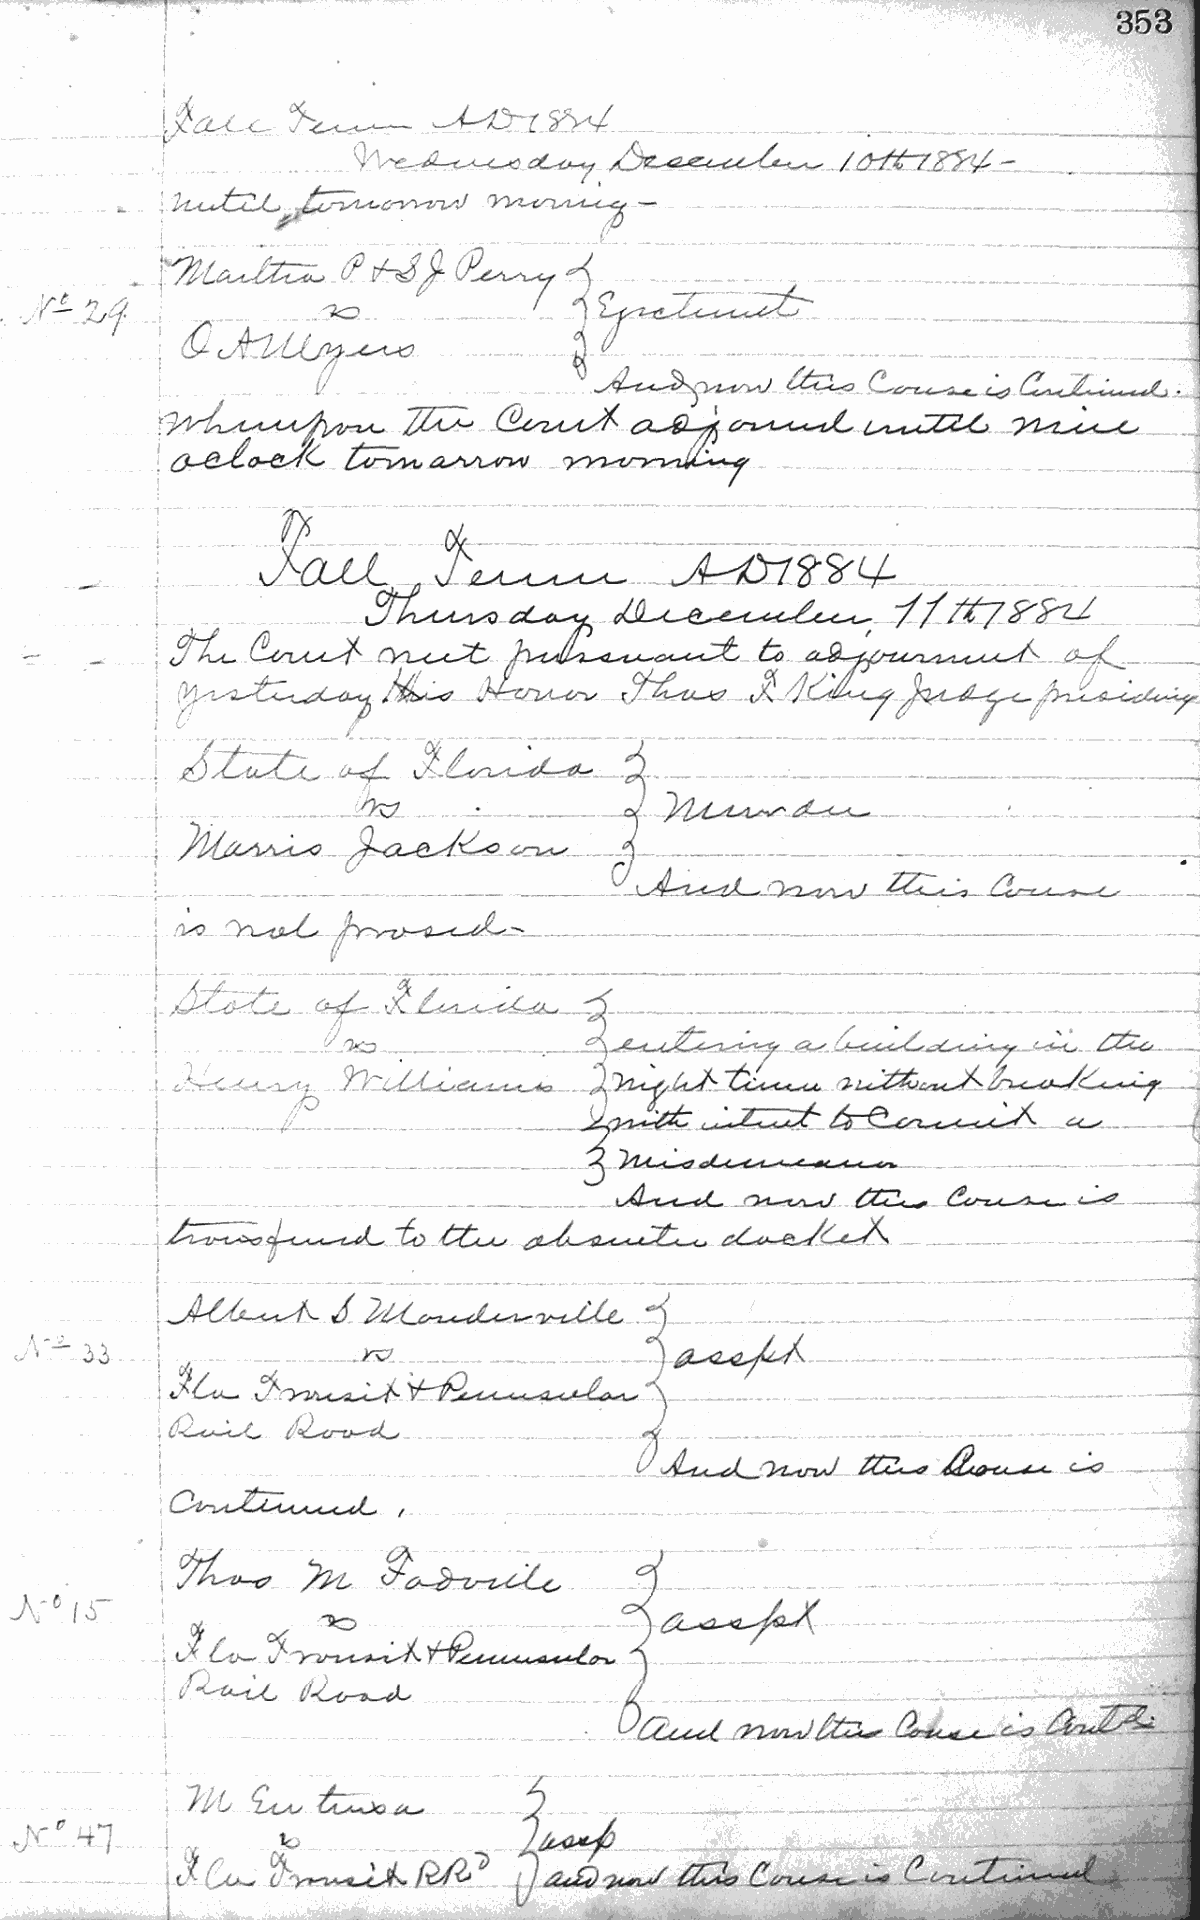 353
Fall Term AD 1884
Wednesday December 10th 1884 -
until tomorrow morning -
Martha P & S J Perry
No 29 vs Ejectment
O A Myers
And now this Couse is Continued.
Whereupon the Court adjorned until nine
oclock tomarrow morning
Fall Term AD 1884
Thursday December, 11th 1884
The Court met pursuant to adjournment of
yesterday His Honor Thos F King Judge presiding
State of Florida
vs Murder
Morris Jackson
And now this Couse
is nol prosed -
State of Florida
vs entering a building in the
Henry Williams night time without breaking
with intent to Commit a
Misdemeanor
And now this Couse is
transfered to the absentee docket
Albert S Manderville
No 33 vs asspt
Fla Transit & Peninsular
Rail Road
And now this Couse is
Continued,
Thos M
No 15 vs asspt
Fla Transit & Peninsular
Rail Road
And now this Couse is Contd.
M
No 47 vs assp
Fla Transit RRd and now this Couse is Continued